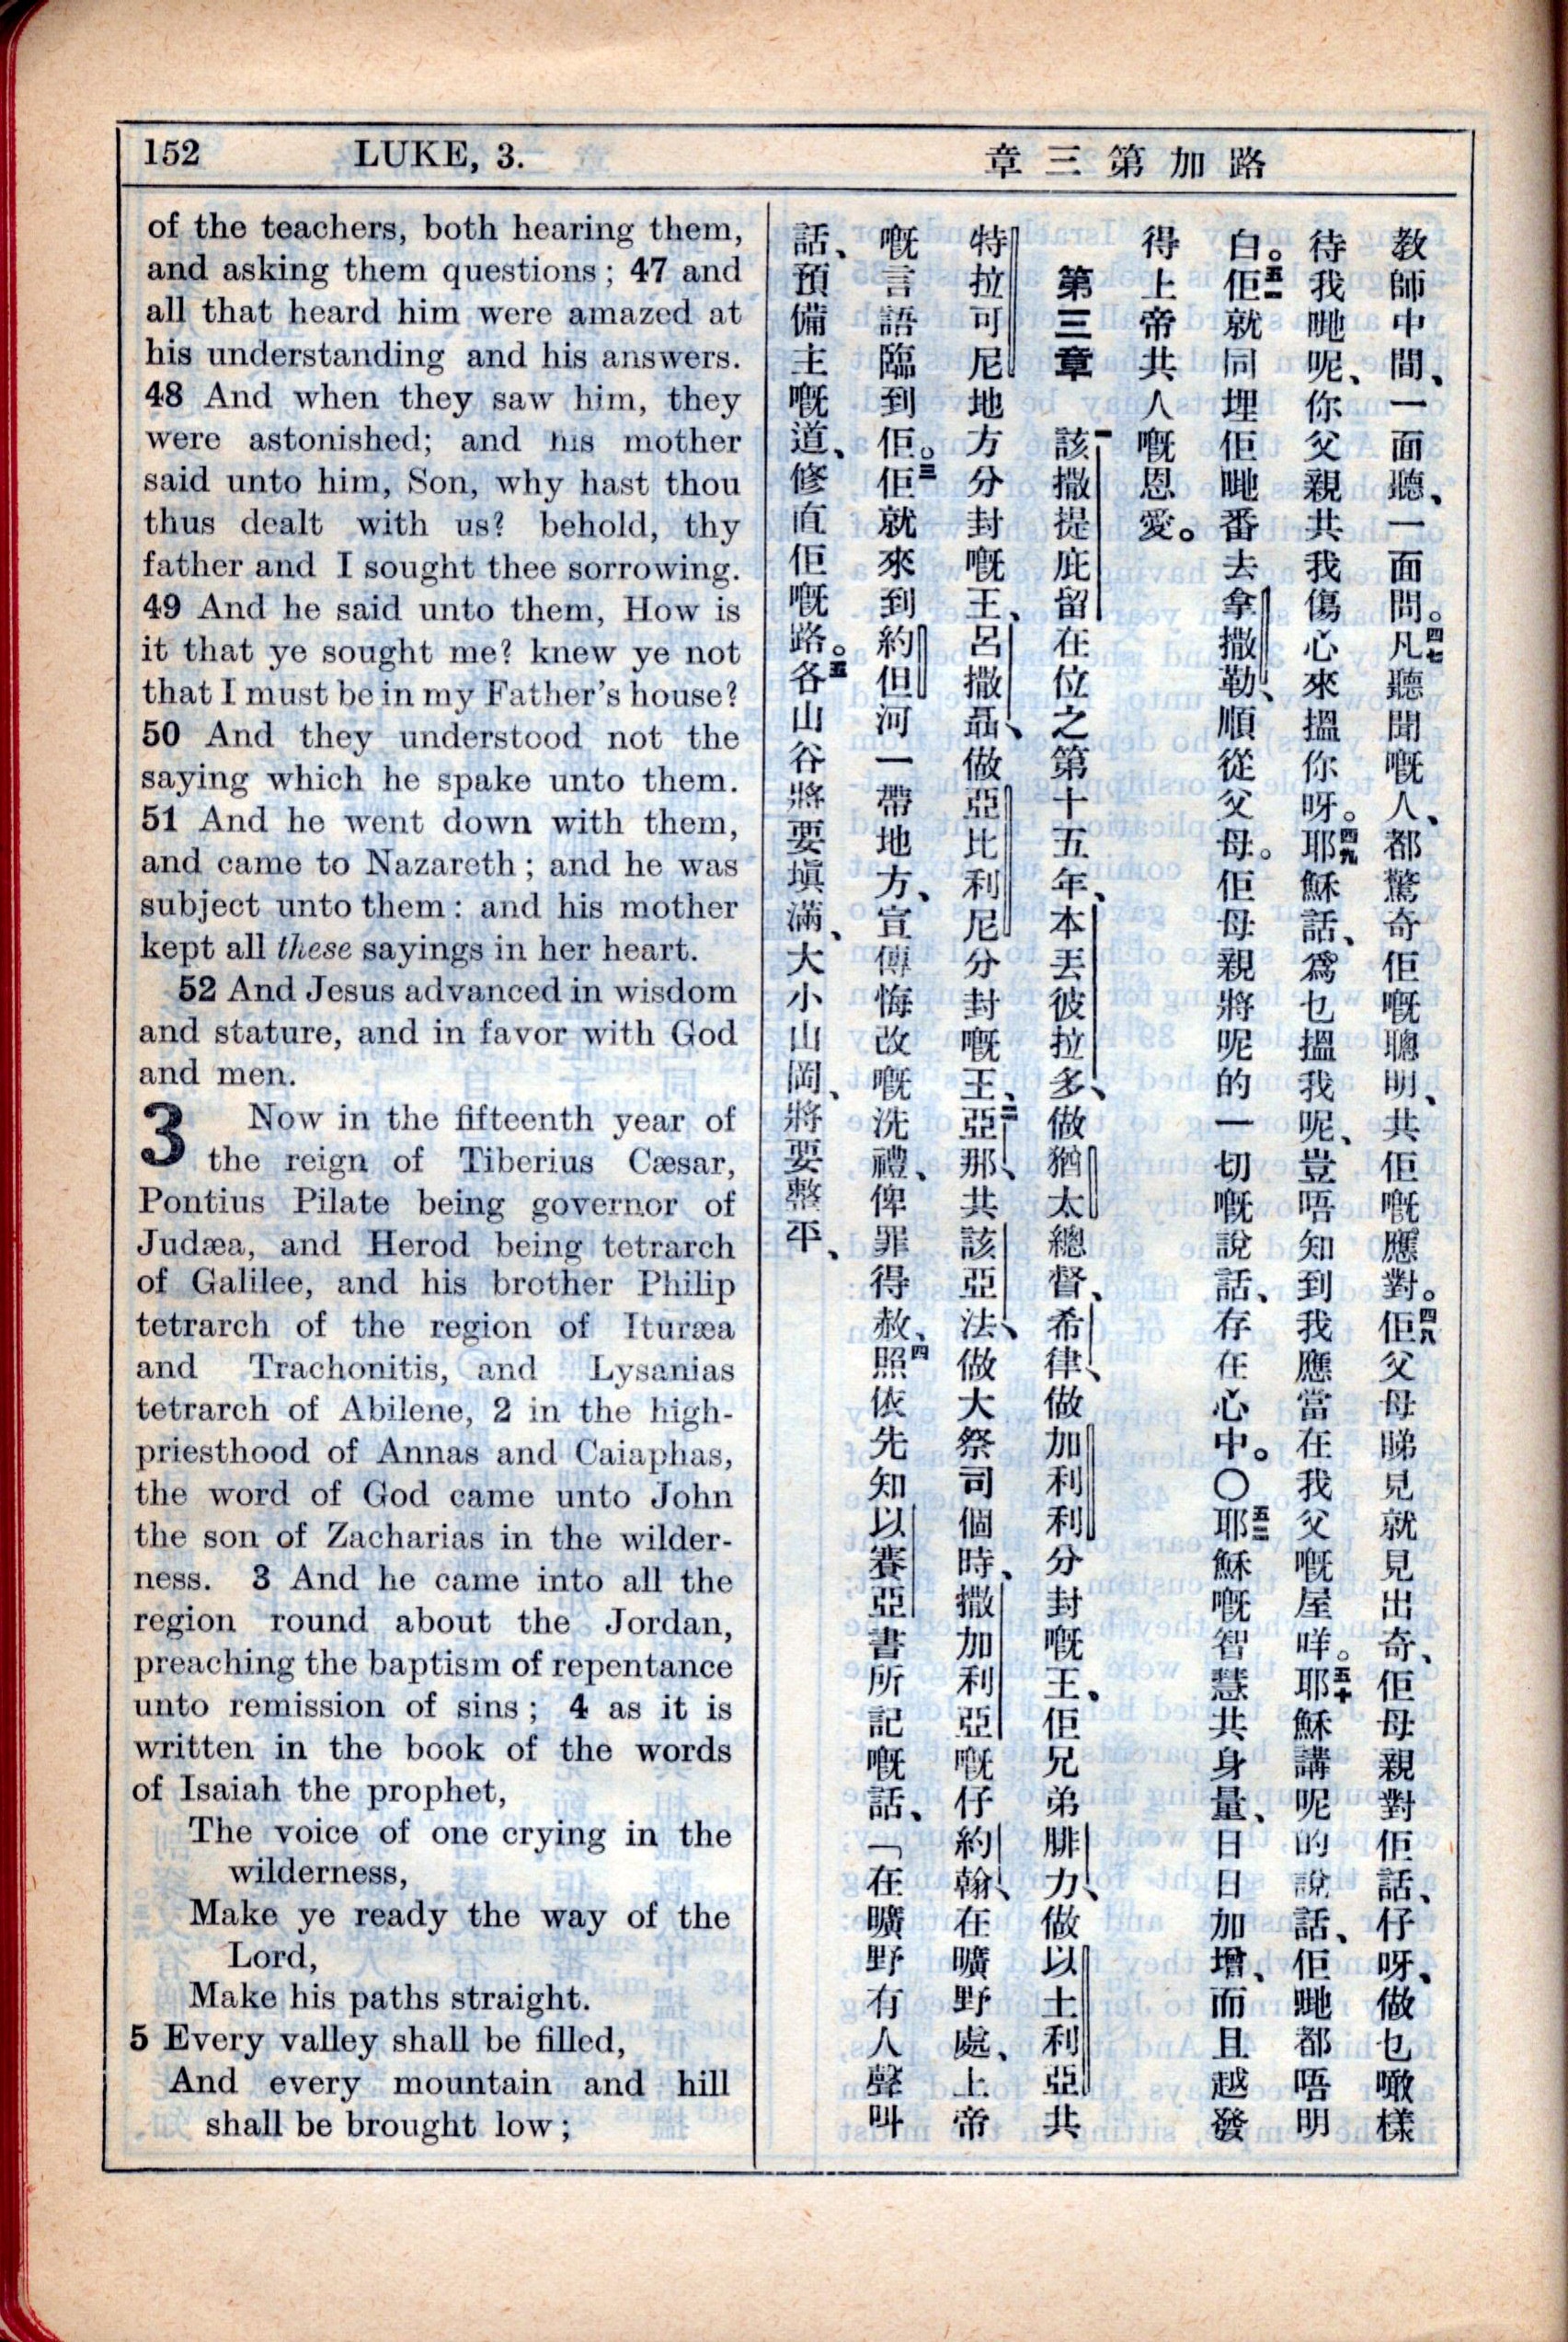 152 LUKE, 3.
路加第三章
of the teachers, both hearing them,
and asking them questions; 47 and
all that heard him were amazed at
his understanding and his answers.
48 And when they saw him, they
were astonished; and his mother
said unto him, Son, why hast thou
thus dealt with us? behold, thy
father and I sought thee sorrowing.
49 And he said unto them, How is
it that ye sought me? knew ye not
that I must be in my Father's house?
50 And they understood not the
saying which he spake unto them.
51 And he went down with them,
and came to Nazareth; and he was
subject unto them: and his mother
kept all these sayings in her heart.
52 And Jesus advanced in wisdom
and stature, and in favor with God
and men.
3 Now in the fifteenth year of
the reign of Tiberius Cæsar,
Pontius Pilate being governor of
Judæa, and Herod being tetrarch
of Galilee, and his brother Philip
tetrarch of the region of Ituræa
and Trachonitis, and Lysanias
tetrarch of Abilene, 2 in the high-
priesthood of Annas and Caiaphas,
the word of God came unto John
the son of Zacharias in the wilder-
ness. 3 And he came into all the
region round about the Jordan,
preaching the baptism of repentance
unto remission of sins; 4 as it is
written in the book of the words
of Isaiah the prophet,
The voice of one crying in the
wilderness,
Make ye ready the way of the
Lord,
Make his paths straight.
5 Every valley shall be filled,
And every mountain and hill
shall be brought low;
教師中間、一面聽、一面問。四七凡聽聞嘅人、都驚奇佢嘅聰明、共佢嘅應對。四八佢父母睇見就見出奇、佢母親對佢話、仔呀、做乜噉樣
待我哋呢、你父親共我傷心來搵你呀。四九耶穌話、爲乜搵我呢、豈唔知到我應當在我父嘅屋咩。五十耶穌講呢的說話、佢哋都唔明
白。五一佢就同埋佢哋番去拿撒勒、順從父母。佢母親將呢的一切嘅說話、存在心中。〇五二耶穌嘅智慧共身量、日日加增、而且越發
得上帝共人嘅恩愛。
第三章 一該撒提庇留在位之第十五年、本丟彼拉多、做猶太總督、希律、做加利利分封嘅王、佢兄弟腓力、做以土利亞共
特拉可尼地方分封嘅王、呂撒聶、做亞比利尼分封嘅王、二亞那、共該亞法、做大祭司個時、撒加利亞嘅仔約翰、在曠野處、上帝
嘅言語臨到佢。三佢就來到約但河一帶地方、宣傳悔改嘅洗禮、俾罪得赦、四照依先知以賽亞書所記嘅話、「在曠野有人聲叫
話、預備主嘅道、修直佢嘅路。五各山谷將要塡滿、大小山岡、將要整平、